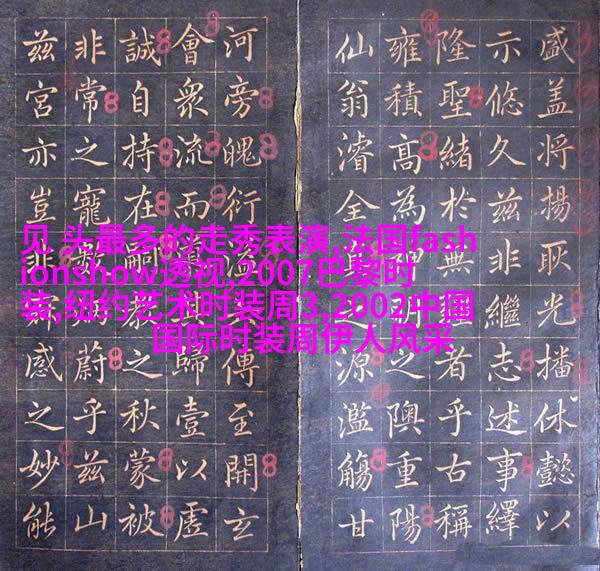 见 头最多的走秀表演,法国fash
ionshow透视,2007巴黎时
装,纽约艺术时装周3,2002中国
国际时装周伊人风采
盛盖将揚耿光播休懿以
示悠久兹非繼志述事繹
隆聖緒於無者乎古稱
雍積高為隩重陽
仙翁濬全源濫觴甘
河旁魄衍傳至開玄
會衆流而歸壹以虛
誠自持在嗣教之秋蒙被
非常之寵蔚乎兹山
兹宮亦豈感之妙能